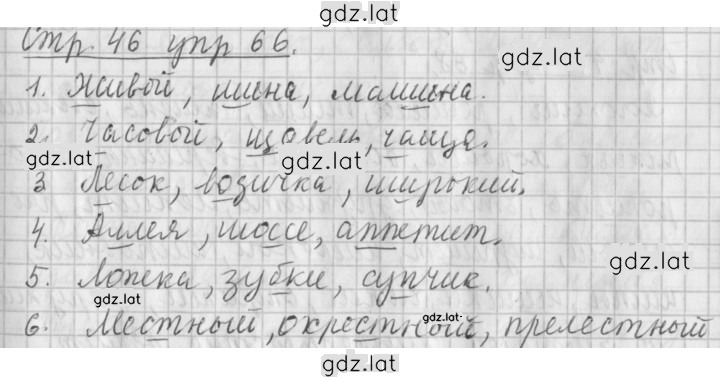 gdz.lat
Стр. 46 упр 66.
gdz.lat
1. Живой, шина, машина.
2. Часовой, щавель, чаща.
gdz.lat gdz.lat
3 Лесок, возичка, широкий.
4. Аллея, шоссе, аппетит.
gdz.lat
5. Лопека, зубки, супчик.
gdz.lat
gdz.lat
6. Местный, окрестный, прелестный
gdz.lat